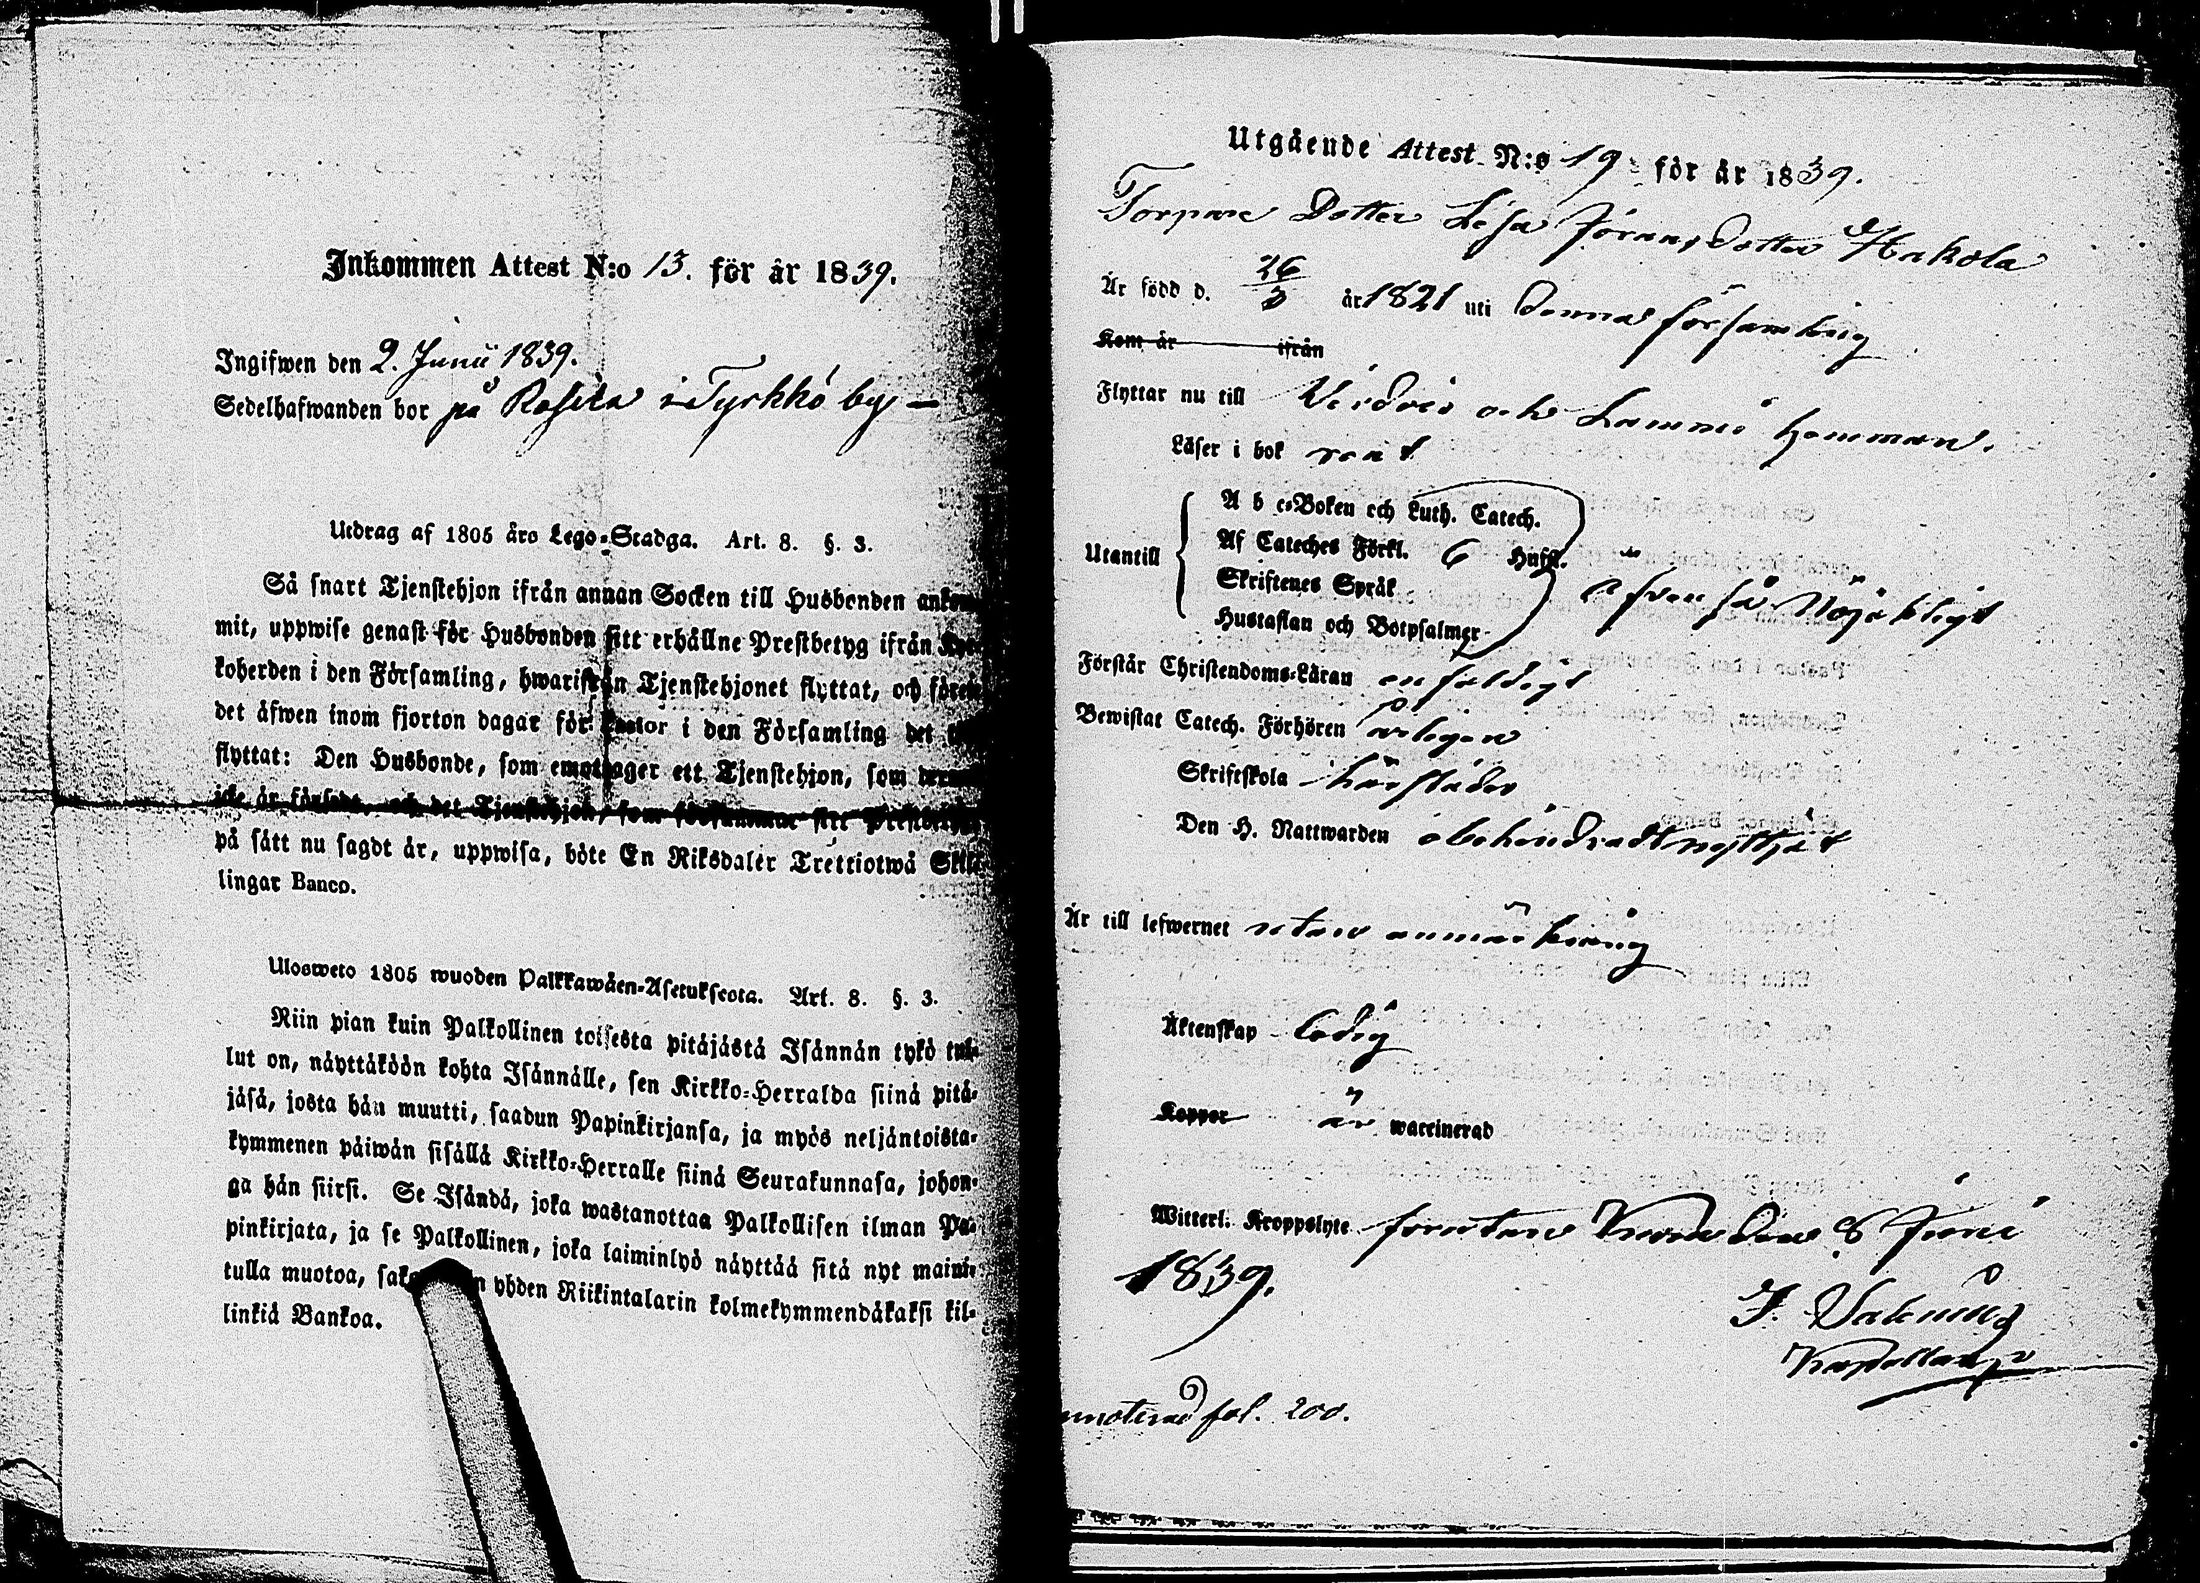 Inkommen Attest N:o 13. för år 1839.
Ingifwen den 2. Junii 1839.
Sedelhafwanden bor på Rosila i Tyrkkö by —
Utdrag af 1805 års Lego-Stadga. Art. 8. §. 3.
Så snart Tjenstehjon ifrån annan Socken till Husbonden ankom-
mit, uppwise genast för Husbonden sitt erhållne Prestbetyg ifrån Kyr-
koherden i den Församling, hwarifrån Tjenstehjonet flyttat, och förete
det äfwen inom fjorton dagar för Pastor i den Församling det
flyttat: Den Husbonde, som emottager ett Tjenstehjon, som dermed
icke är försedt, och det Tjenstehjon, som försummar sitt Prestbetyg,
på sätt nu sagdt är, uppwisa, böte En Riksdaler Trettiotwå Skil-
lingar Banco.
Ulosweto 1805 wuoden Palkkawäen-Asetuksesta. Art. 8. §. 3.
Niin pian kuin Palkollinen toisesta pitäjästä Isännän tykö tul-
lut on, näyttäköön kohta Isännälle, sen Kirkko-Herralda siinä pitä-
jäsä, josta hän muutti, saadun Papinkirjansa, ja myös neljäntoista-
kymmenen päiwän sisällä Kirkko-Herralle siinä Seurakunnasa, johon-
ga hän siirsi. Se Isändä, joka wastanottaa Palkollisen ilman Pa-
pinkirjata, ja se Palkollinen, joka laiminlyö näyttää sitä nyt mainit-
tulla muotoa, yhden Riikintalarin kolmekymmendäkaksi kil-
linkiä Bankoa.
Utgående Attest N:o 19 för år 1839.
Torpare Dotter Lisa Jöransdotter Hakola
Är född d. 26/3 år 1821 uti denna församling
Kom år ifrån
Flyttar nu till Virdois och Lammi hemman.
Läser i bok rent
A b c-Boken och Luth. Catech.
Af Cateches Förkl. 6 Hufst.
Utantill
Skriftenes Språk
äfven så Nöjaktigt
Hustaflan och Botpsalmer
Förstår Christendoms-Läran enfaldigt
Bewistat Catech. Förhören årligen
Skriftskola härstädes
Den H. Nattwarden obehindradt nyttjat
Är till lefwernet utan anmärkning
Äktenskap ledig
Koppor är waccinerad
Witterl. Kroppslyte förutan den 8 Juni
1839.
Kapellan
fol. 200.